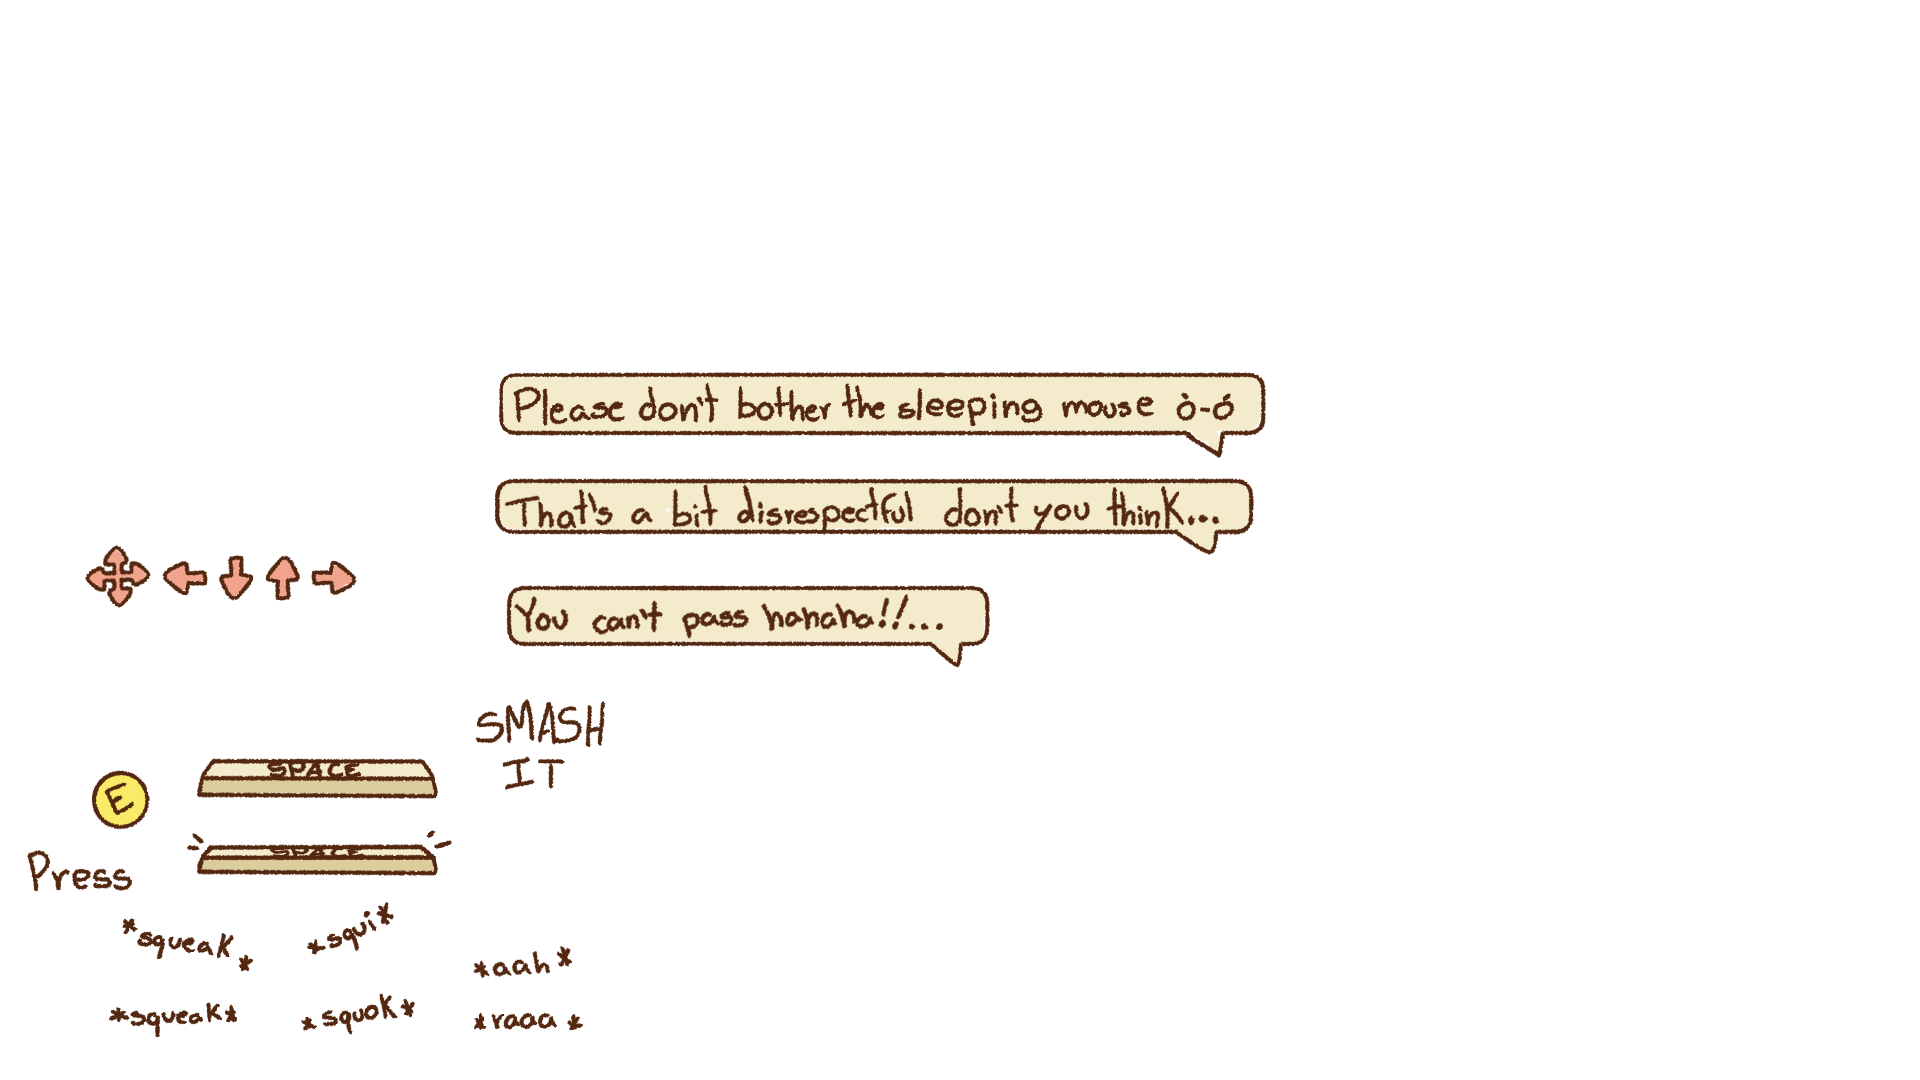 Please don't bother the sleeping mouse ò-ó
That's a bit disrespectful don't you think...
You can't pass hahaha!!...
SMASH
IT
SPACE
E
SPACE
Press
*squeak*
*squi*
*aah*
*squeak*
*squok*
*raaa*